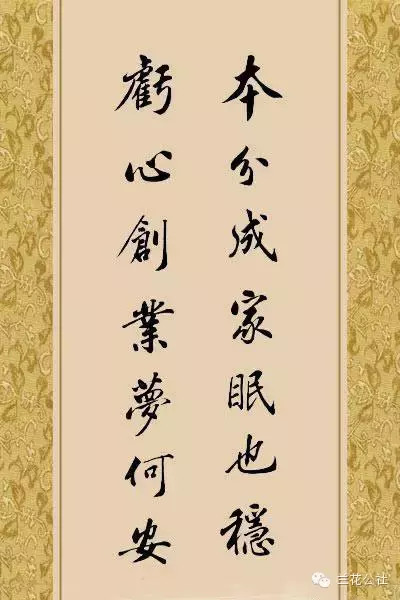 本分成家眠也穩
虧心創業夢何安
兰花公社